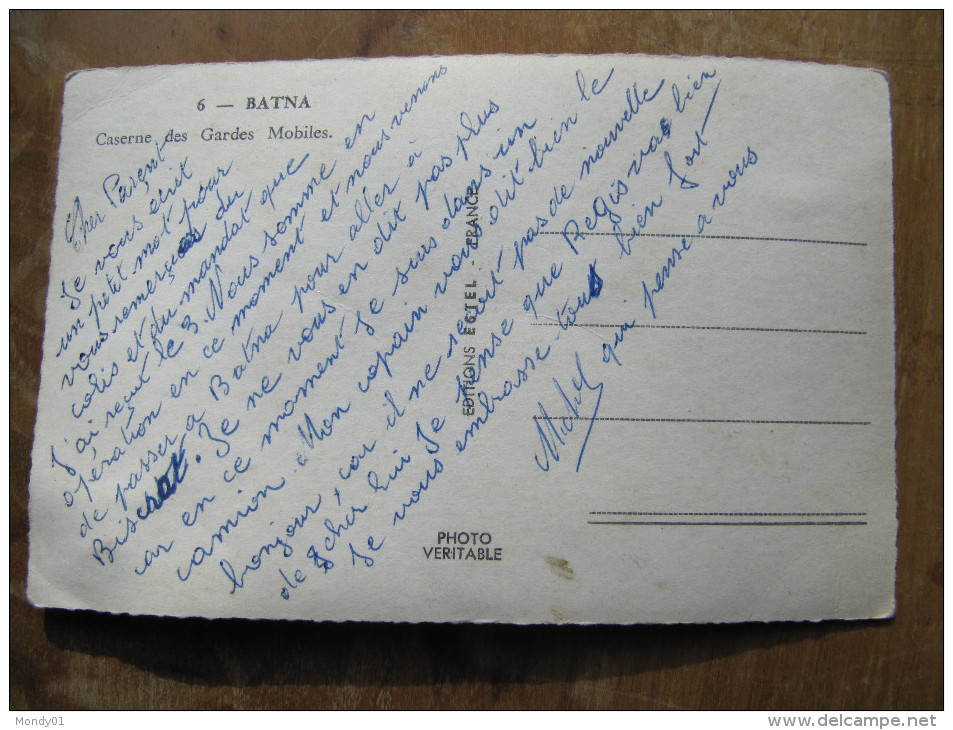 6 — BATNA
Caserne des Gardes Mobiles.
Cher Parent
Je vous écrit
un petit mot pour
vous remerçies du
colis et du mandat que
J'ai reçut le 3. Nous somme en
opération en ce moment et nous venons
de passer a Batna pour aller à
Biscrat. Je ne vous en dit pas plus
car en ce moment Je suis dans un
camion. Mon copain vous dit bien le
bonjour, car il ne reçoit pas de nouvelle
de chez lui Je pense que Regis vas bien
Je vous embrasse tous bien fort
Michel qui pense a vous
EDITIONS ESTEL - FRANCE
PHOTO
VERITABLE
Mondy01
http://www.delcampe.net